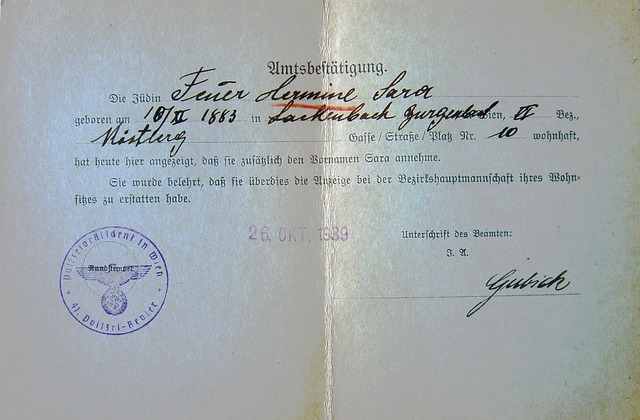 Amtsbestätigung.
Die Jüdin Feuer Hermine Sara
geboren am 10/XI 1883 in Lackenbach Burgenland Wien, VI Bez.,
Gasse/Straße/Platz Nr. 10 wohnhaft,
hat heute hier angezeigt, daß sie zusätzlich den Vornamen Sara annehme.
Sie wurde belehrt, daß sie überdies die Anzeige bei der Bezirkshauptmannschaft ihres Wohn-
sitzes zu erstatten habe.
26. OKT. 1939
Unterschrift des Beamten:
J. A.
Polizeipräsident in Wien
Rundstempel
41. Polizei-Revier